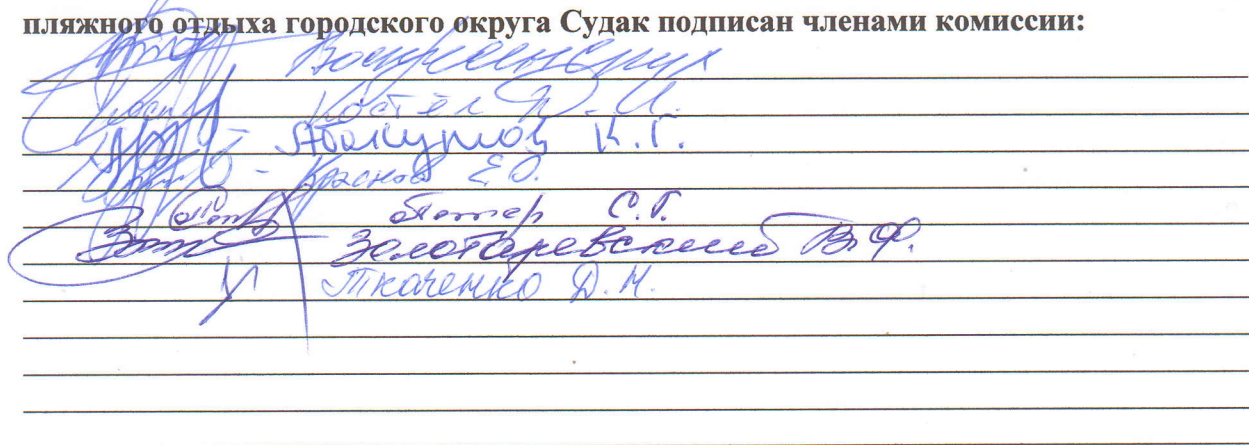 пляжного отдыха городского округа Судак подписан членами комиссии:
Костел
Абакумов К.Г.
Краснов Е.О.
С.Г.
Золотаревский В.Ф.
Ткаченко Д.М.